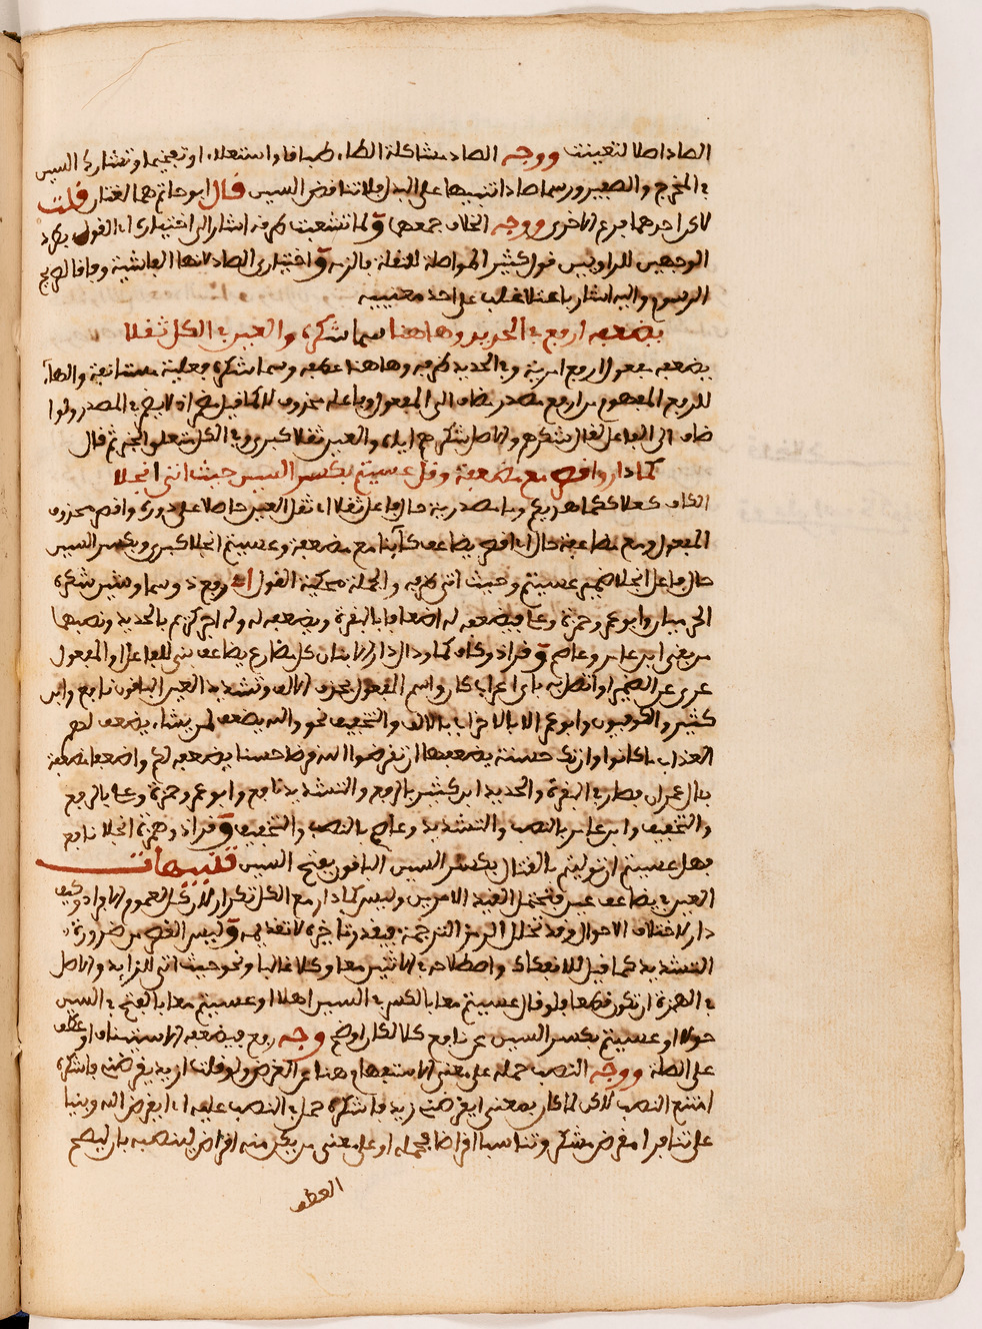 الصاد اصلا لتعينت ووجه الصاد مشاكلة الطاء طباقا واستعلاء او تفخيما وتشارك السين
في المخرج والصفير ورسما صادا تنبيها على البدل فلا تناقض السين قال ابو حاتم هما لغتان قلت
لاكن احدهما فرع الاخرى ووجه الخلاف جمعهما ولما تشعبت طرقه اشار الى اختياري اي القول
الوجهين للراويين قول كثير المواصلة للنقلة بالزنه واختياري الصاد لانها الفاشية وفاقا لصريح
الرسوم واليه اشار باعتلا غلب على احد معنييه
يضعفه ارفع في الحديد وهاهنا سما شكره والعين في الكل ثقلا
يضعفه مفعول ارفع امرية وفي الحديد ظرفه وهاهنا عطفه وسما شكره فعلية مستانفة والهاء
للرفع المفهوم من ارفع مصدر مضاف الى المفعول وفاعله محذوف
ضاف الى الفاعل لقال شكرهم والاصل شكرهم اياه والعين ثقلا كبرى وفي الكل متعلق الخبر ثم قال
كما دار واقصر مع مضعفة وقل عسيتم بكسر السين حيث اتى انجلا
الكاف كعلا كما هديكم وما مصدرية حال فاعل ثقلا اي ثقل العين حاصلا على دوره واقصر محذوف
المفعول ومع مضاعفة حال اي اقصر يضاعف كائنا مع مضعفة وعسيتم انجلا كبرى وبكسر السين
حال فاعل انجلا ضمير عسيتم وحيث اتى ظرفه والجملة محكية القول اي رفع ذو سما وشين شكره
الحرميان وابو عمرو وحمزة وعلي فيضعفه له اضعافا بالبقرة ويضعفه له وله اجر كريم بالحديد ونصبهما
من بقي ابن عامر وعاصم وقرا ذو كاف كما ودال دار الابنان كل مضارع يضاعف بني للفاعل او المفعول
عري عن الضمير او اتصل به باي اعراب كان واسم المفعول بحذف الالف وتشديد العين الباقون نافع وابن
كثير والكوفيون وابو عمرو الا بالاحزاب بالالف والتخفيف نحو والله يضعف لمن يشاء يضعف لهم
العذاب ما كانوا وان تك حسنة يضعفها ان تقرضوا الله قرضا حسنا يضعفه لكم واضعفا مضعفة
بال عمران فصار في البقرة والحديد ابن كثير بالرفع والتشديد نافع وابو عمرو وحمزة وعلي بالرفع
والتخفيف وابن عامر بالنصب والتشديد وعاصم بالنصب والتخفيف وقرا ذو همزة انجلا نافع
فهل عسيتم ان توليتم بالقتال بكسر السين الباقون بفتح السين تنبيهات
العين في يضاعف عين فيحتمل القيد الامرين وليس كما دار مع الكل تكرار لان كل لعموم الافراد وكيف
دار لاختلاف الاحوال وقد تخلل الرمز الترجمة فيقدر تاخره لا تقديمه وليس القصر من ضرورة
التشديد كما قيل للانفكاك واصطلاحه في الاثنين معا وكلا غالبا ونحو حيث اتى للزايد والاصل
في الهمزة ان تكون قطعا فلو قال عسيتم معا بالكسر في السين اهلا او عسيتم معا بالفتح في السين
حولا او عسيتم بكسر السين عن نافع كلا لكان اوضح وجه رفع فيضعفه الاستيناف او عطف
على الصلة ووجه النصب حمله على معنى الاستفهام وهنا عن القرض ولو قلت ازيد يقرضني فاشكره
امتنع النصب لاكن لما كان بمعنى ايقرضني زيد فاشكره حمل في النصب عليه اي ايقرض الله وبنيا
على تنافر امقرض فشكر وتناسب اقراض فجمله او على معنى من يكن منه اقراض لينصبه بان ليصح
العطف